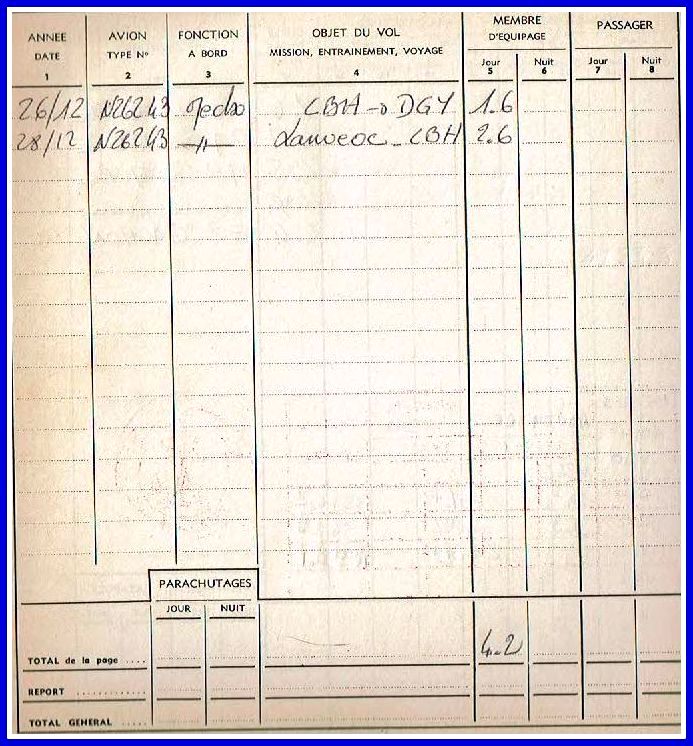 ANNEE AVION FONCTION OBJET DU VOL MEMBRE D'EQUIPAGE PASSAGER
DATE TYPE N° A BORD MISSION, ENTRAINEMENT, VOYAGE Jour Nuit Jour Nuit
1 2 3 4 5 6 7 8
26/12 N26243 Mecbo CBH → DGY 1.6
28/12 N26243 —"— Lanveoc - CBH 2.6
PARACHUTAGES
JOUR NUIT
TOTAL de la page .... 4.2
REPORT ............
TOTAL GENERAL .....